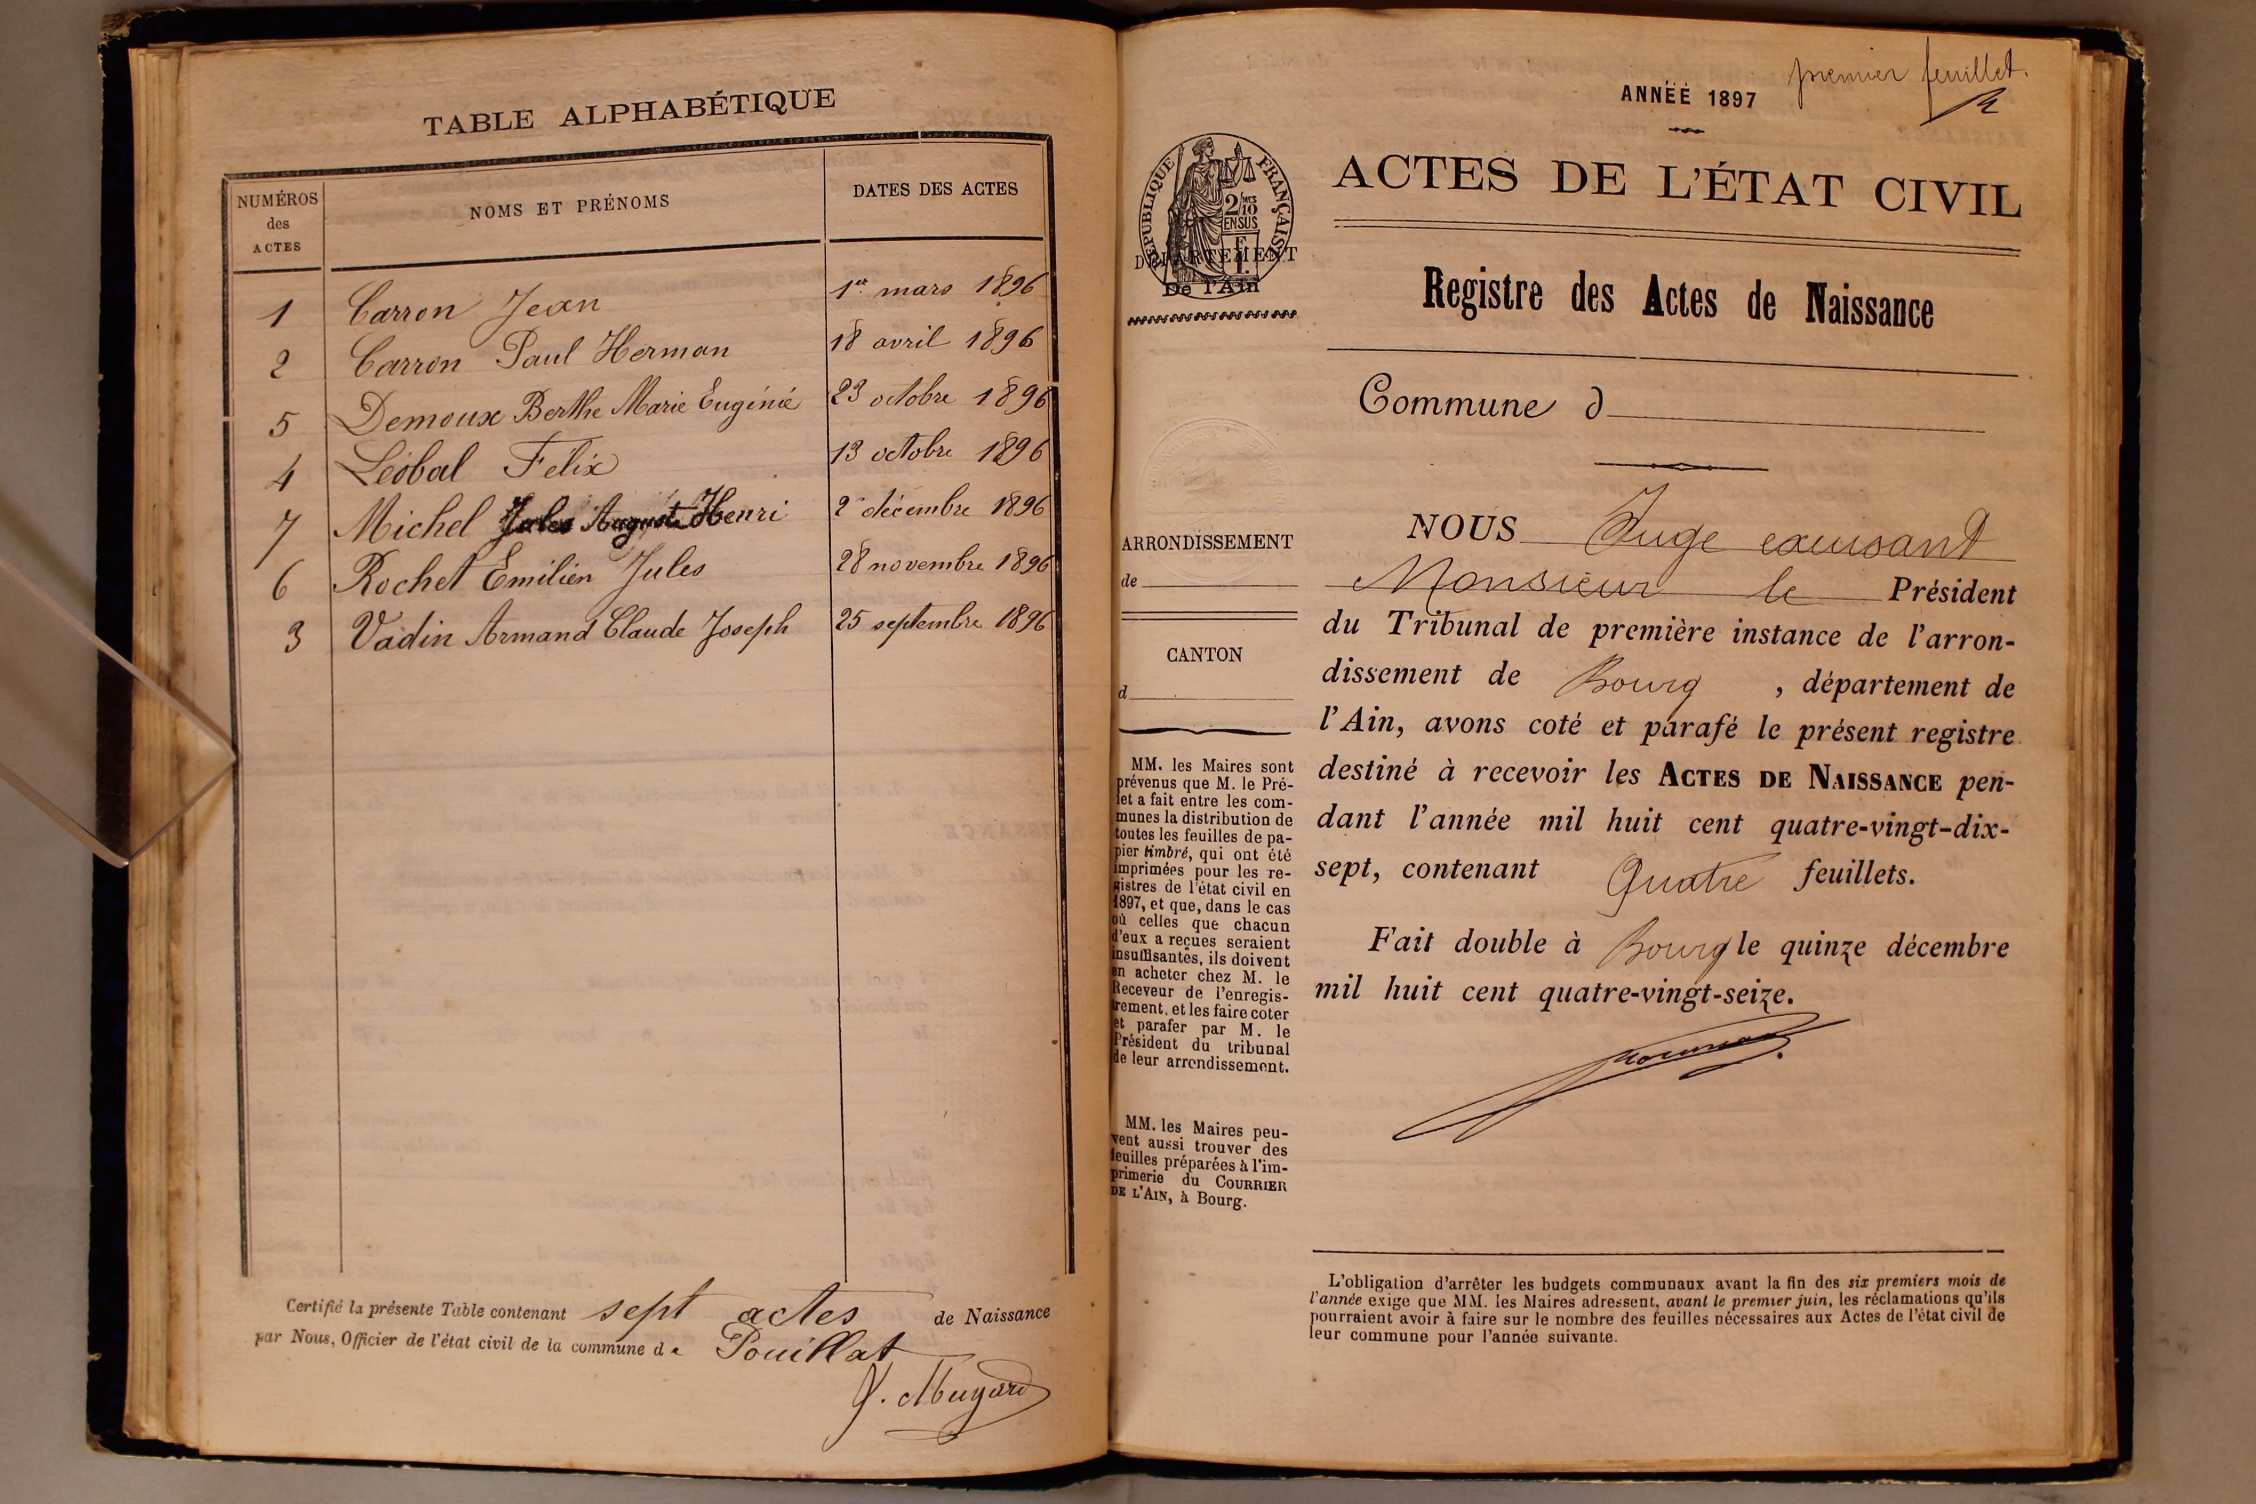 TABLE ALPHABÉTIQUE
NUMÉROS des ACTES
NOMS ET PRÉNOMS
DATES DES ACTES
1 Carron Jean 1er mars 1896
2 Carron Paul Herman 18 avril 1896
5 Demoux Berthe Marie Eugénie 23 octobre 1896
4 Léobal Felix 13 octobre 1896
7 Michel Jules Auguste Henri 2 décembre 1896
6 Rochet Emilien Jules 28 novembre 1896
3 Vadin Armand Claude Joseph 25 septembre 1896
Certifié la présente Table contenant sept actes de Naissance
par Nous, Officier de l'état civil de la commune de Pouillat
premier feuillet.
ANNÉE 1897
RÉPUBLIQUE FRANÇAISE
2/10 EN SUS
DÉPARTEMENT
De l'Ain
ACTES DE L'ÉTAT CIVIL
Registre des Actes de Naissance
Commune d
ARRONDISSEMENT
de
CANTON
d
MM. les Maires sont
prévenus que M. le Pré-
fet a fait entre les com-
munes la distribution de
toutes les feuilles de pa-
pier timbré, qui ont été
imprimées pour les re-
gistres de l'état civil en
1897, et que, dans le cas
où celles que chacun
d'eux a reçues seraient
insuffisantes, ils doivent
en acheter chez M. le
Receveur de l'enregis-
trement, et les faire coter
et parafer par M. le
Président du tribunal
de leur arrondissement.
MM. les Maires peu-
vent aussi trouver des
feuilles préparées à l'im-
primerie du COURRIER
DE L'AIN, à Bourg.
NOUS Juge excusant
Monsieur le Président
du Tribunal de première instance de l'arron-
dissement de Bourg , département de
l'Ain, avons coté et parafé le présent registre
destiné à recevoir les ACTES DE NAISSANCE pen-
dant l'année mil huit cent quatre-vingt-dix-
sept, contenant Quatre feuillets.
Fait double à Bourg le quinze décembre
mil huit cent quatre-vingt-seize.
L'obligation d'arrêter les budgets communaux avant la fin des six premiers mois de
l'année exige que MM. les Maires adressent, avant le premier juin, les réclamations qu'ils
pourraient avoir à faire sur le nombre des feuilles nécessaires aux Actes de l'état civil de
leur commune pour l'année suivante.